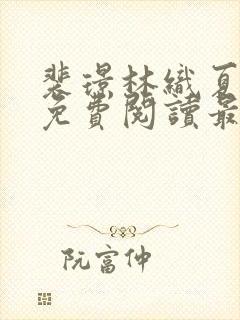 裴璟林織夏
免費閱讀最
阮富仲